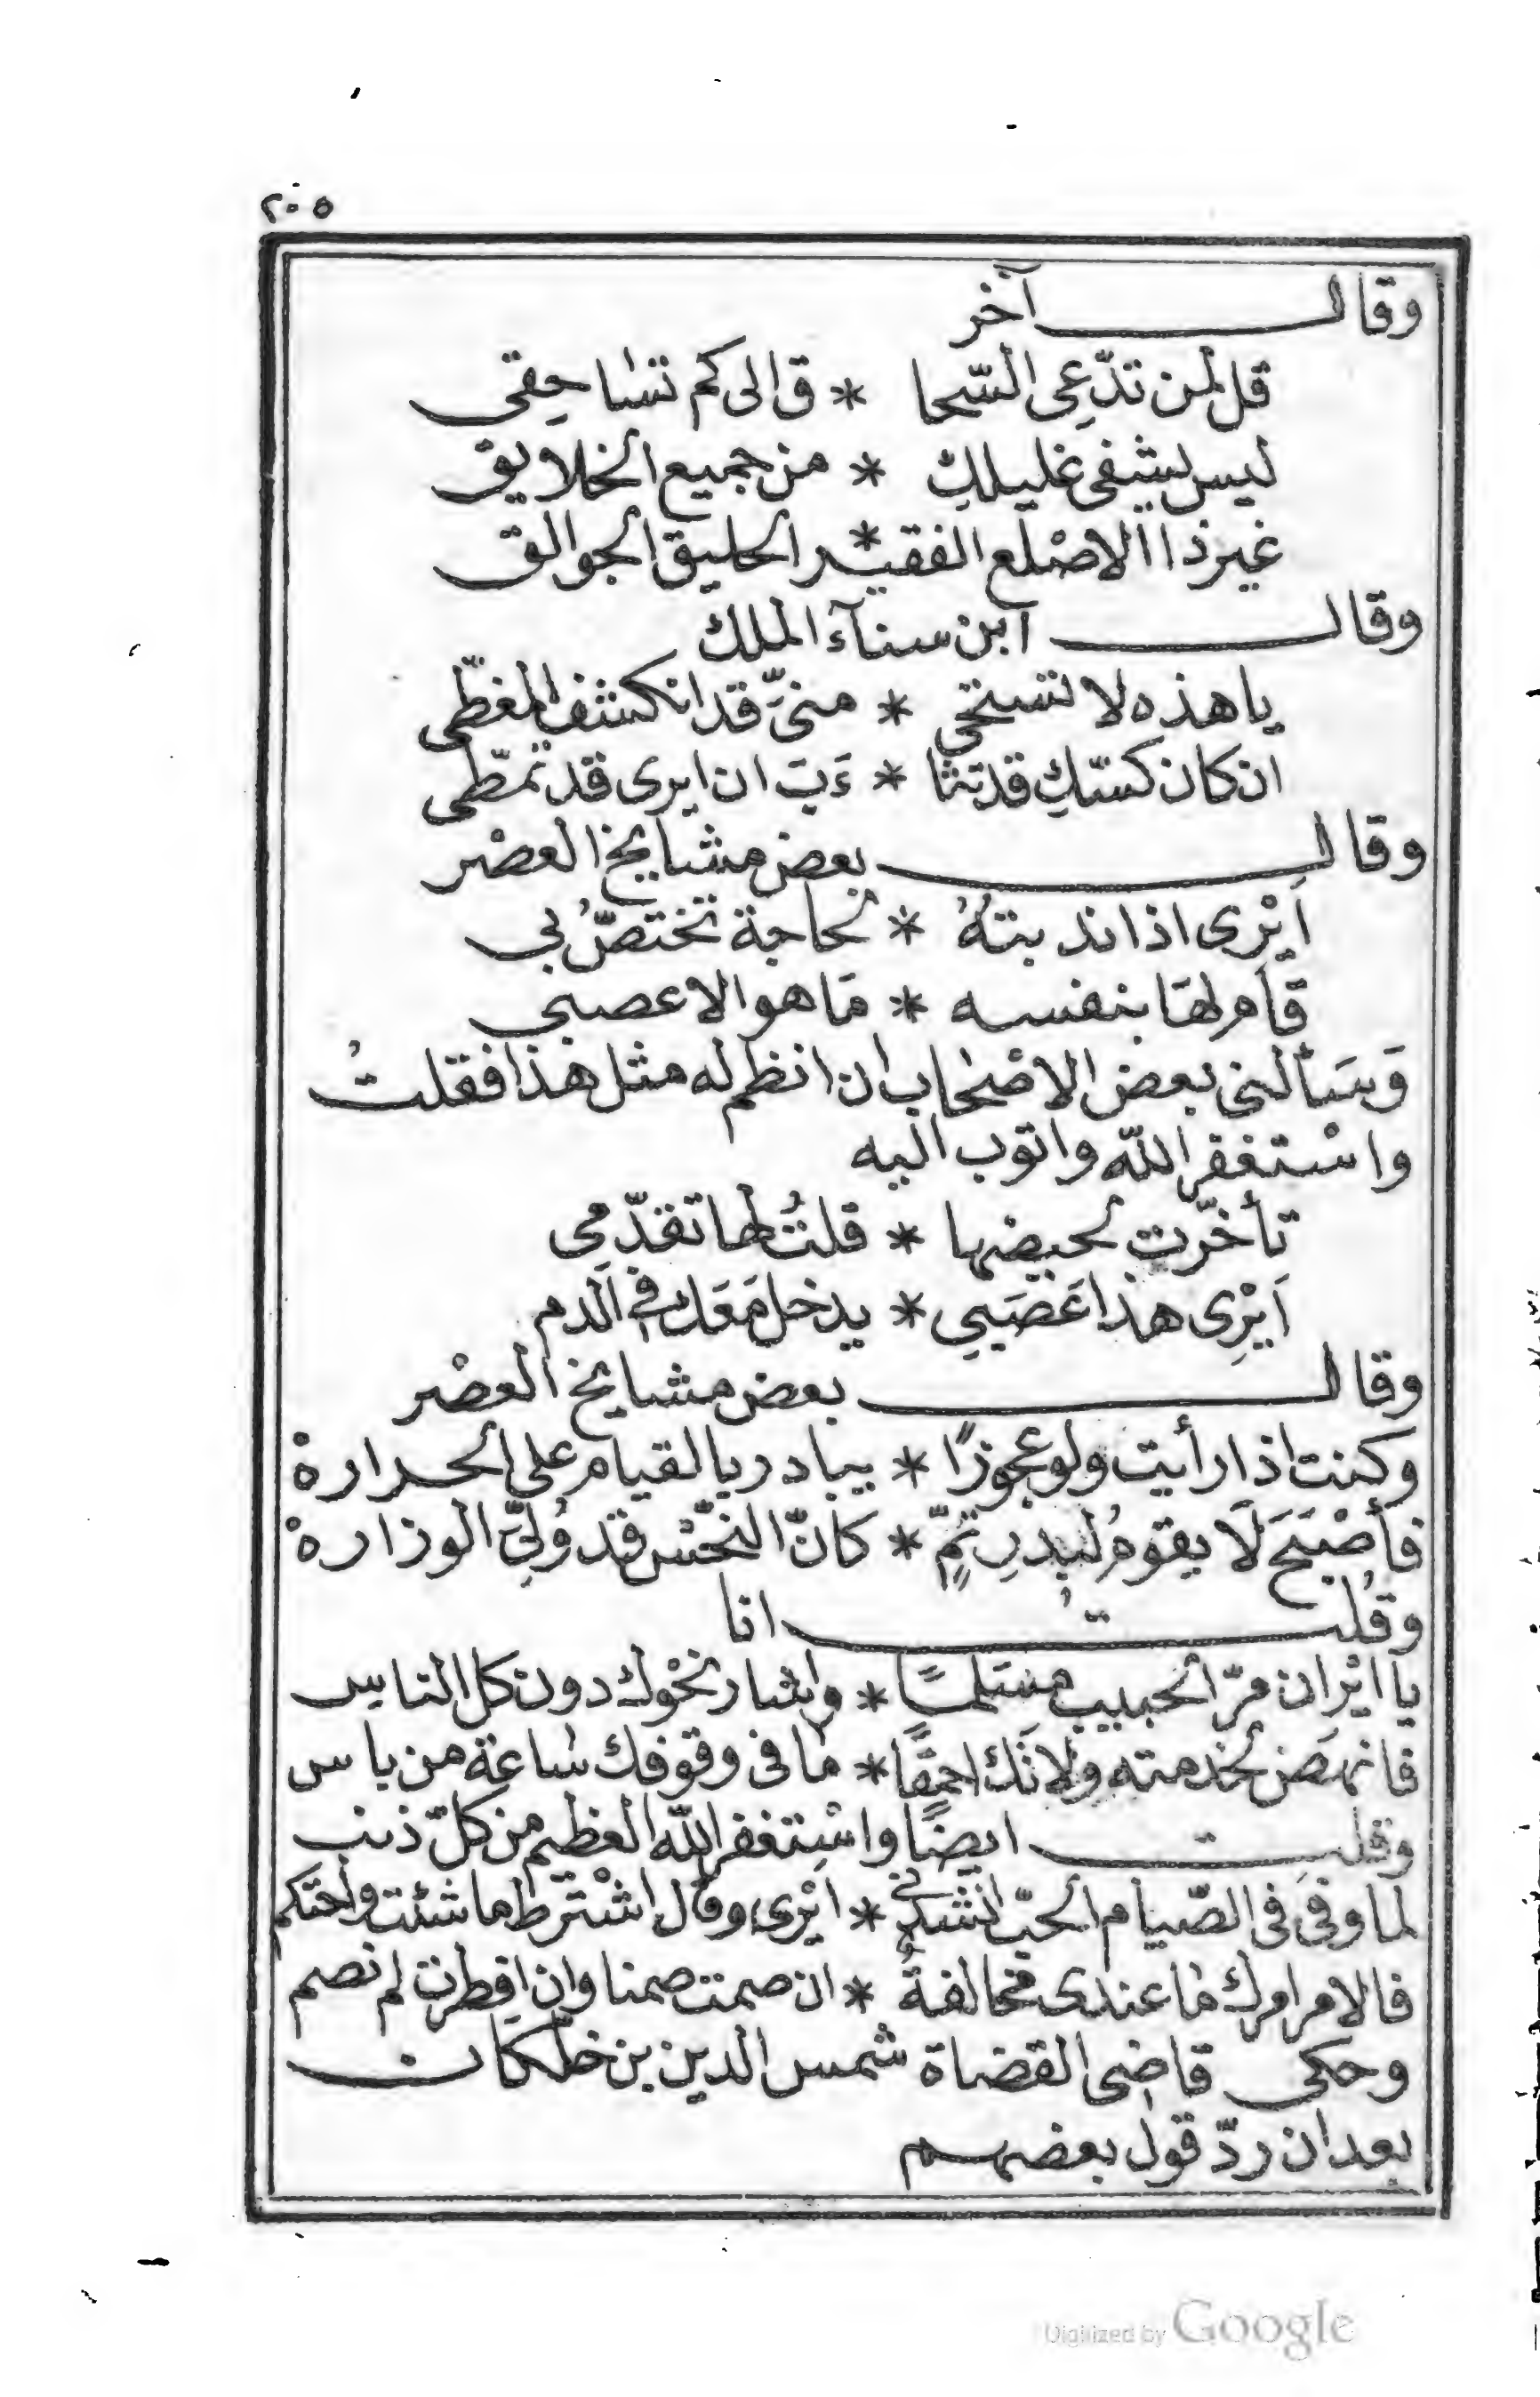 ٢٠٥
وقال آخر
قل لمن تدّعِى السّحا * ق الى كم تساحِقى
ليس يشفى غليلكِ * من جميع الخلايق
غير ذا الاصْلع الفقيـ * ـر الحليق الجوالق
وقال ابن سنآء الملك
يا هذه لا تستحى * منىّ قد انكشف المغطّى
ان كان كسّكِ قد تثا * ءَبَ ان ايرى قد تمطّى
وقال بعض مشايخ العصْر
اَيْرى اذا ندبتهُ * لحاجة تختصّ بى
قام لهَا بنفسه * مَا هو الا عصبى
وَسَألنى بعض الاصْحاب ان انظم له مثل هذا فقلتُ
واسْتغفر الله واتوب اليه
تأخّرت لحيضها * قلتُ لها تقدّمى
اَيْرِى هذا عَصَبِى * يدخل مَعَك فى الدم
وقال بعض مشايخ العصْر
وكنت اذا رأيت ولو عجوزًا * يبادر يا لقيام على الحراره
فأصْبَحَ لَا يقومُ لبدرِ تمٍّ * كانّ النحّسْ قد وُلِىَّ الوزارهْ
وقُلتُ انا
يا ايْر ان مرّ الحبيب مسَلمًا * واشار نحْوك دون كل الناس
فانهَض لخدمته ولا تَك احمقًا * مَا فى وقوفك سَاعة من باس
وقلت ايضًا واسْتغفر الله العظيم من كلّ ذنب
لما وفى فى الصّيام الحبّ انشدنى * ايْرى وقال اشْترط ما شئت واحتكم
فالامر امرك مَا عندى مخالفةٌ * ان صمت صمنا وان افطرت لم نصم
وحكى قاضى القضاة شمس الدين بن خلكان
بعد ان ردّ قول بعضهم
Digitized by Google